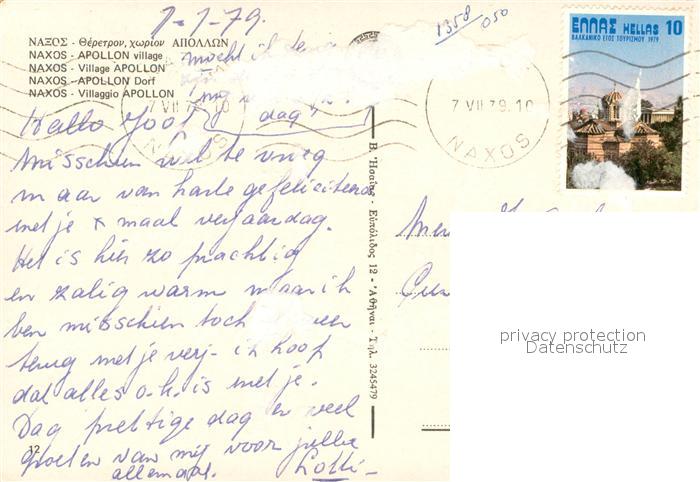 7-7-79.
1358
050
ΝΑΞΟΣ - Θέρετρον, χωρίον ΑΠΟΛΛΩΝ
NAXOS - APOLLON village
NAXOS - Village APOLLON
NAXOS - APOLLON Dorf
NAXOS - Villaggio APOLLON
mocht ik
Hallo Joot dag,
misschien wil te vroeg
maar van harte gefeliciteerd
met je x maal verjaardag.
Het is hier zo prachtig
en zalig warm maar ik
ben misschien toch weer
terug met je verj- ik hoop
dat alles o.k. is met je.
Dag prettige dag en veel
groeten van mij voor jullie
allemaal. Lotti-
12
Β. Ἡσαΐας - Εὐπόλιδος 12 - Ἀθῆναι - Τηλ. 3245479
7 VII 79.10
ΝΑΧΟS
7 VII 79.10
NAXOS
ΕΛΛΑΣ HELLAS 10
ΒΑΛΚΑΝΙΚΟ ΕΤΟΣ ΤΟΥΡΙΣΜΟΥ 1979
privacy protection
Datenschutz